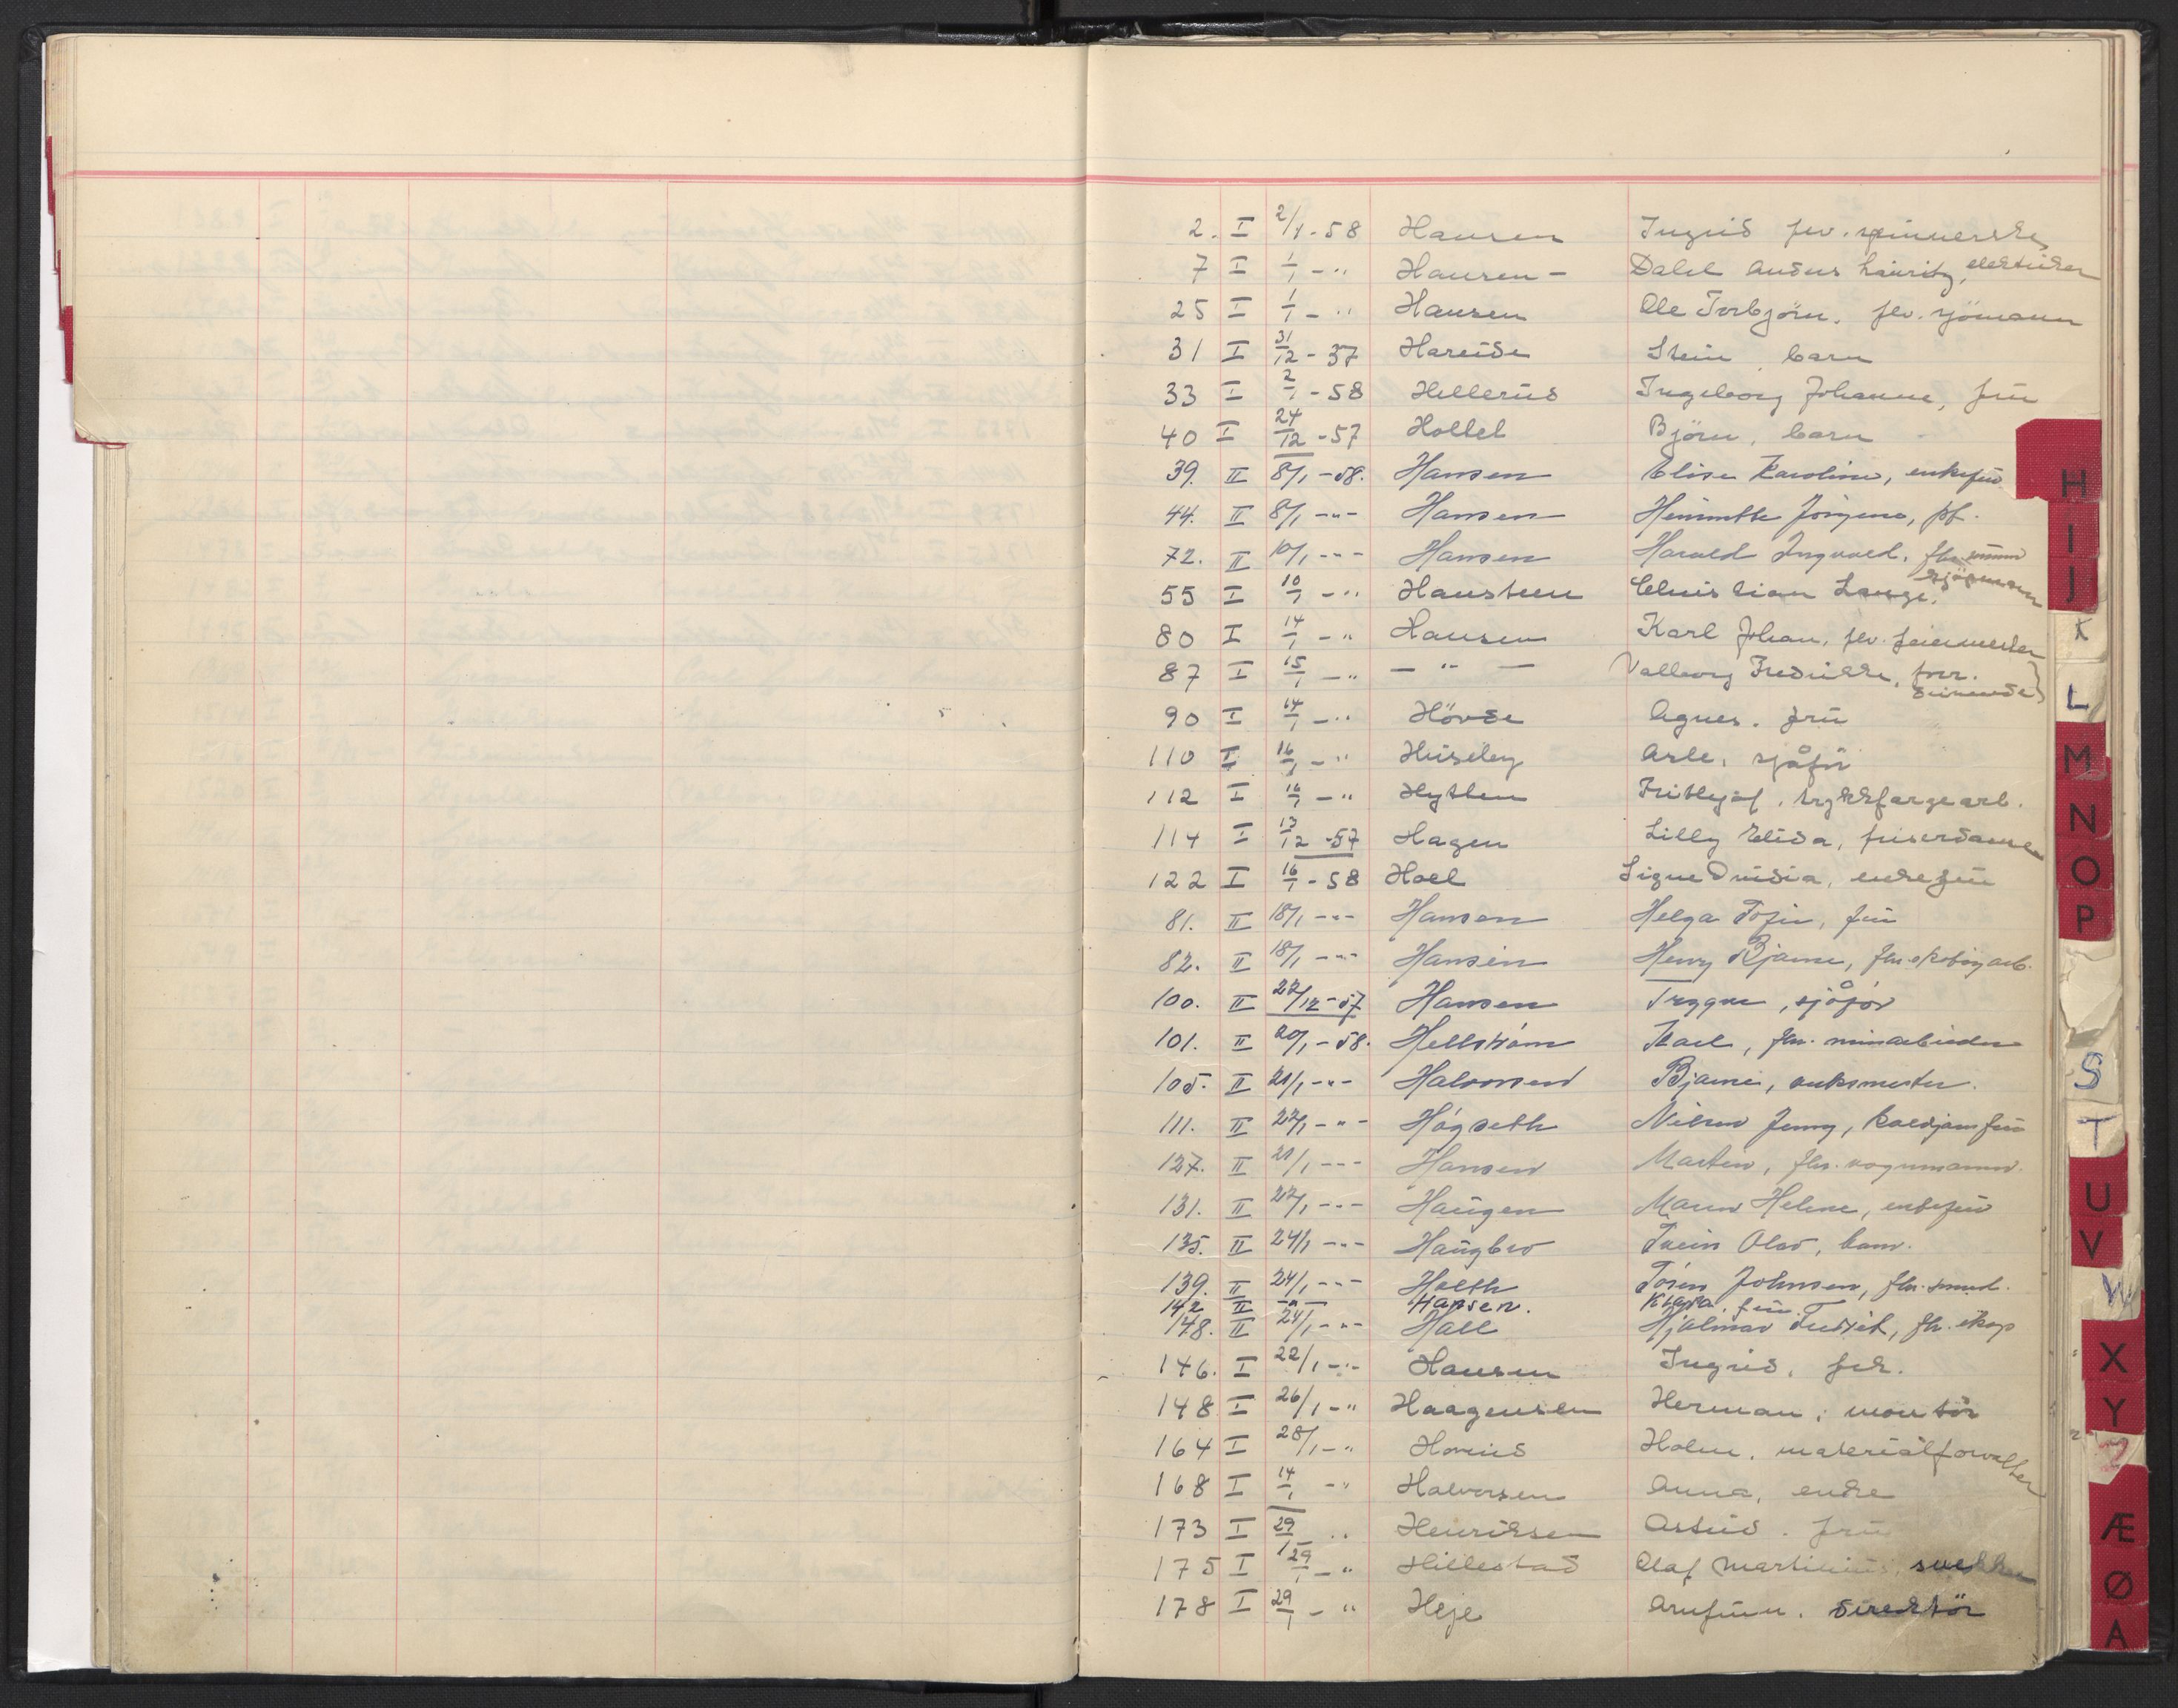 2. I 2/1-58 Hansen Ingrid fhv. spinnerske
7 I 1/1 - " Hansen - Dalel Anders Lauritz, elektriker
25 I 1/1 - " Hansen Ole Torbjörn. fhv. sjömann
31 I 31/12 - 57 Hareide Stein, barn
33 I 2/1 - 58 Hellerud Ingeborg Johanne, fru
40 I 24/12 - 57 Hollel Björn, barn
39. II 8/1 - 58. Hansen Elise Karoline, enkefru
44. II 8/1 - " - Hansen Henriette Jörgine, pf.
72. II 10/1 - " - Hansen Harald Ingvald, fhv.
55 I 10/1 - " Hansteen Christian Lange. sjömann
80 I 14/1 - " Hansen Karl Johan, fhv. feiermester
87 I 15/1 - " - " - Valborg Fredrikke, forr.
90 I 14/1 - " Hövde Agnes. fru
110 I 16/1 - " Huseby Arle, sjåfør
112 I 16/1 - " Hytten Frithjof, trykkfargearb.
114 I 13/12 - 57 Hagen Lilly Elida, friserdame
122 I 16/1 - 58 Hoel Signe Ovidia, enkefru
81. II 18/1 - " - Hansen Helga Sofie, fru
82. II 18/1 - " - Hansen Henry Bjarne, fhv. skotöyarb.
100. II 27/12-57 Hansen Trygve, sjåfør
101. II 20/1 - 58. Hellström Karl, fhv. minearbeider
105. II 21/1 - " - Halvorsen Bjarne, verksmester.
111. II 22/1 - " - Högseth Nilsen Jenny,
127. II 21/1 - " - Hansen Marten, fhv. vognmann.
131. II 22/1 - " - Haugen Maren Helene, enkefru
135. II 24/1 - " - Haugbro Svein Olav, barn.
139. II 24/1 - " - Helth Sören Johnsen, fhv. smed.
142 II - " - Hansen. Klara. fru.
148. II 24/1 - " - Hall Hjalmar Fredrik, fh. eksp
146. I 22/1 - " - Hansen Ingrid, frk.
148 I 26/1 - " Haagensen Herman, montör
164 I 28/1 - " Hovind Holm, materialforvalter
168 I 14/1 - " Halvorsen Anna, enke
173 I 29/1 " Henriksen Astrid. fru
175 I 29/1 - " Hillestad Olaf Martinius, snekker
178 I 29/1 - " Heje Arnfinn. direktör
H
I
J
K
L
M
N
O
P
S
T
U
V
W
X
Y
Z
Æ
Ø
A